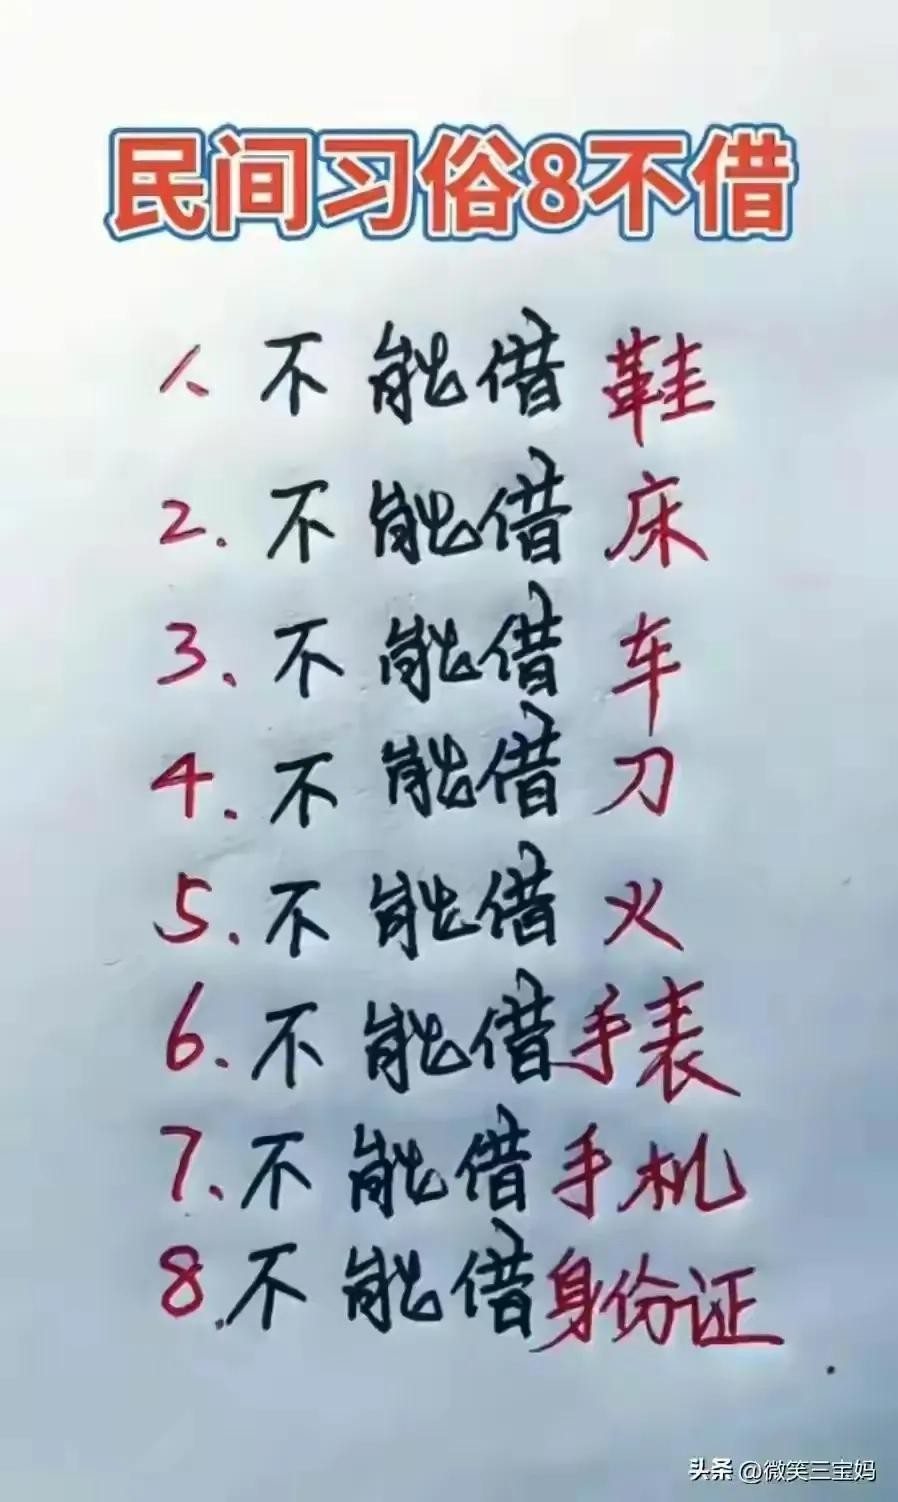 民间习俗8不借
1、不能借鞋
2.不能借床
3.不能借车
4.不能借刀
5.不能借火
6.不能借手表
7.不能借手机
8.不能借身份证
头条 @微笑三宝妈